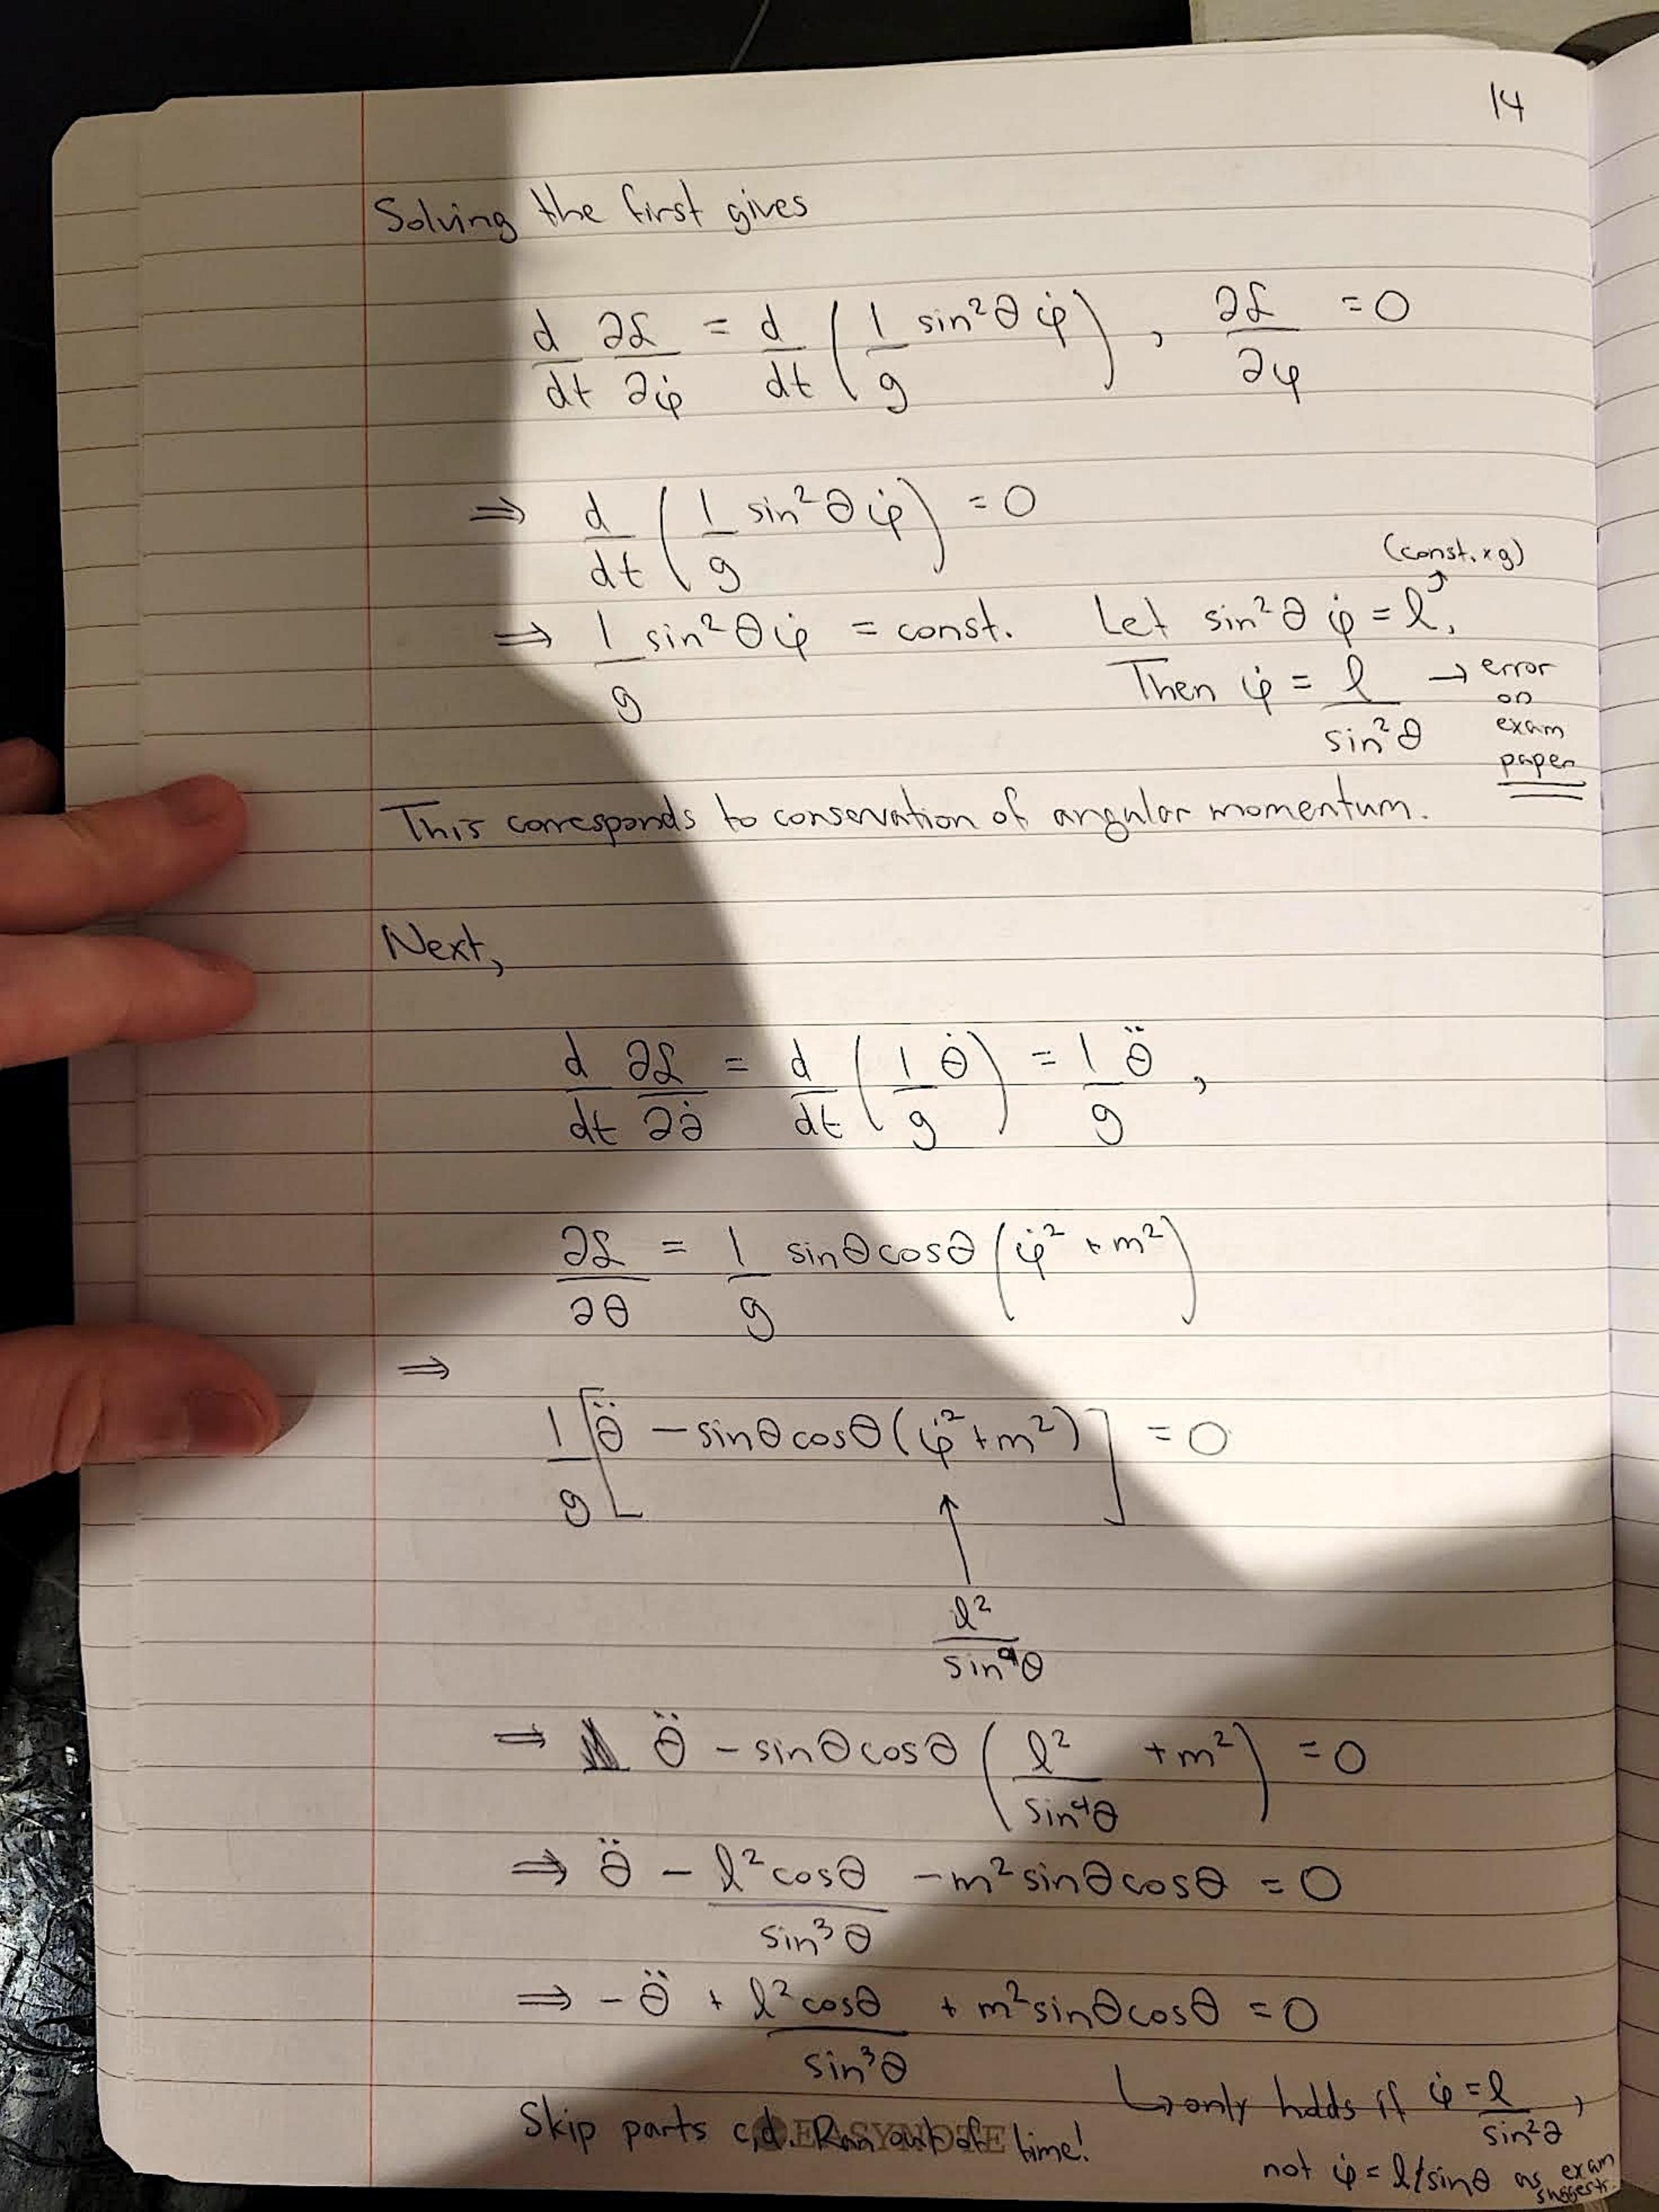 14
Solving the first gives
d/dt ∂ℒ/∂φ̇ = d/dt (1/g sin²θ φ̇), ∂ℒ/∂φ = 0
⇒ d/dt (1/g sin²θ φ̇) = 0
(const. × g)
⇒ 1/g sin²θ φ̇ = const. Let sin²θ φ̇ = l,
Then φ̇ = l/sin²θ → error on exam paper
This corresponds to conservation of angular momentum.
Next,
d/dt ∂ℒ/∂θ̇ = d/dt (1/g θ̇) = 1/g θ̈,
∂ℒ/∂θ = 1/g sinθcosθ(φ̇² + m²)
⇒
1/g [θ̈ - sinθcosθ(φ̇² + m²)] = 0
↑
l²/sin⁴θ
⇒ θ̈ - sinθcosθ (l²/sin⁴θ + m²) = 0
⇒ θ̈ - l²cosθ/sin³θ - m²sinθcosθ = 0
⇒ -θ̈ + l²cosθ/sin³θ + m²sinθcosθ = 0
↳ only holds if φ̇ = l/sin²θ,
not φ̇ = l/sinθ as exam suggests.
Skip parts c,d. Ran out of time!
EASYNOTE